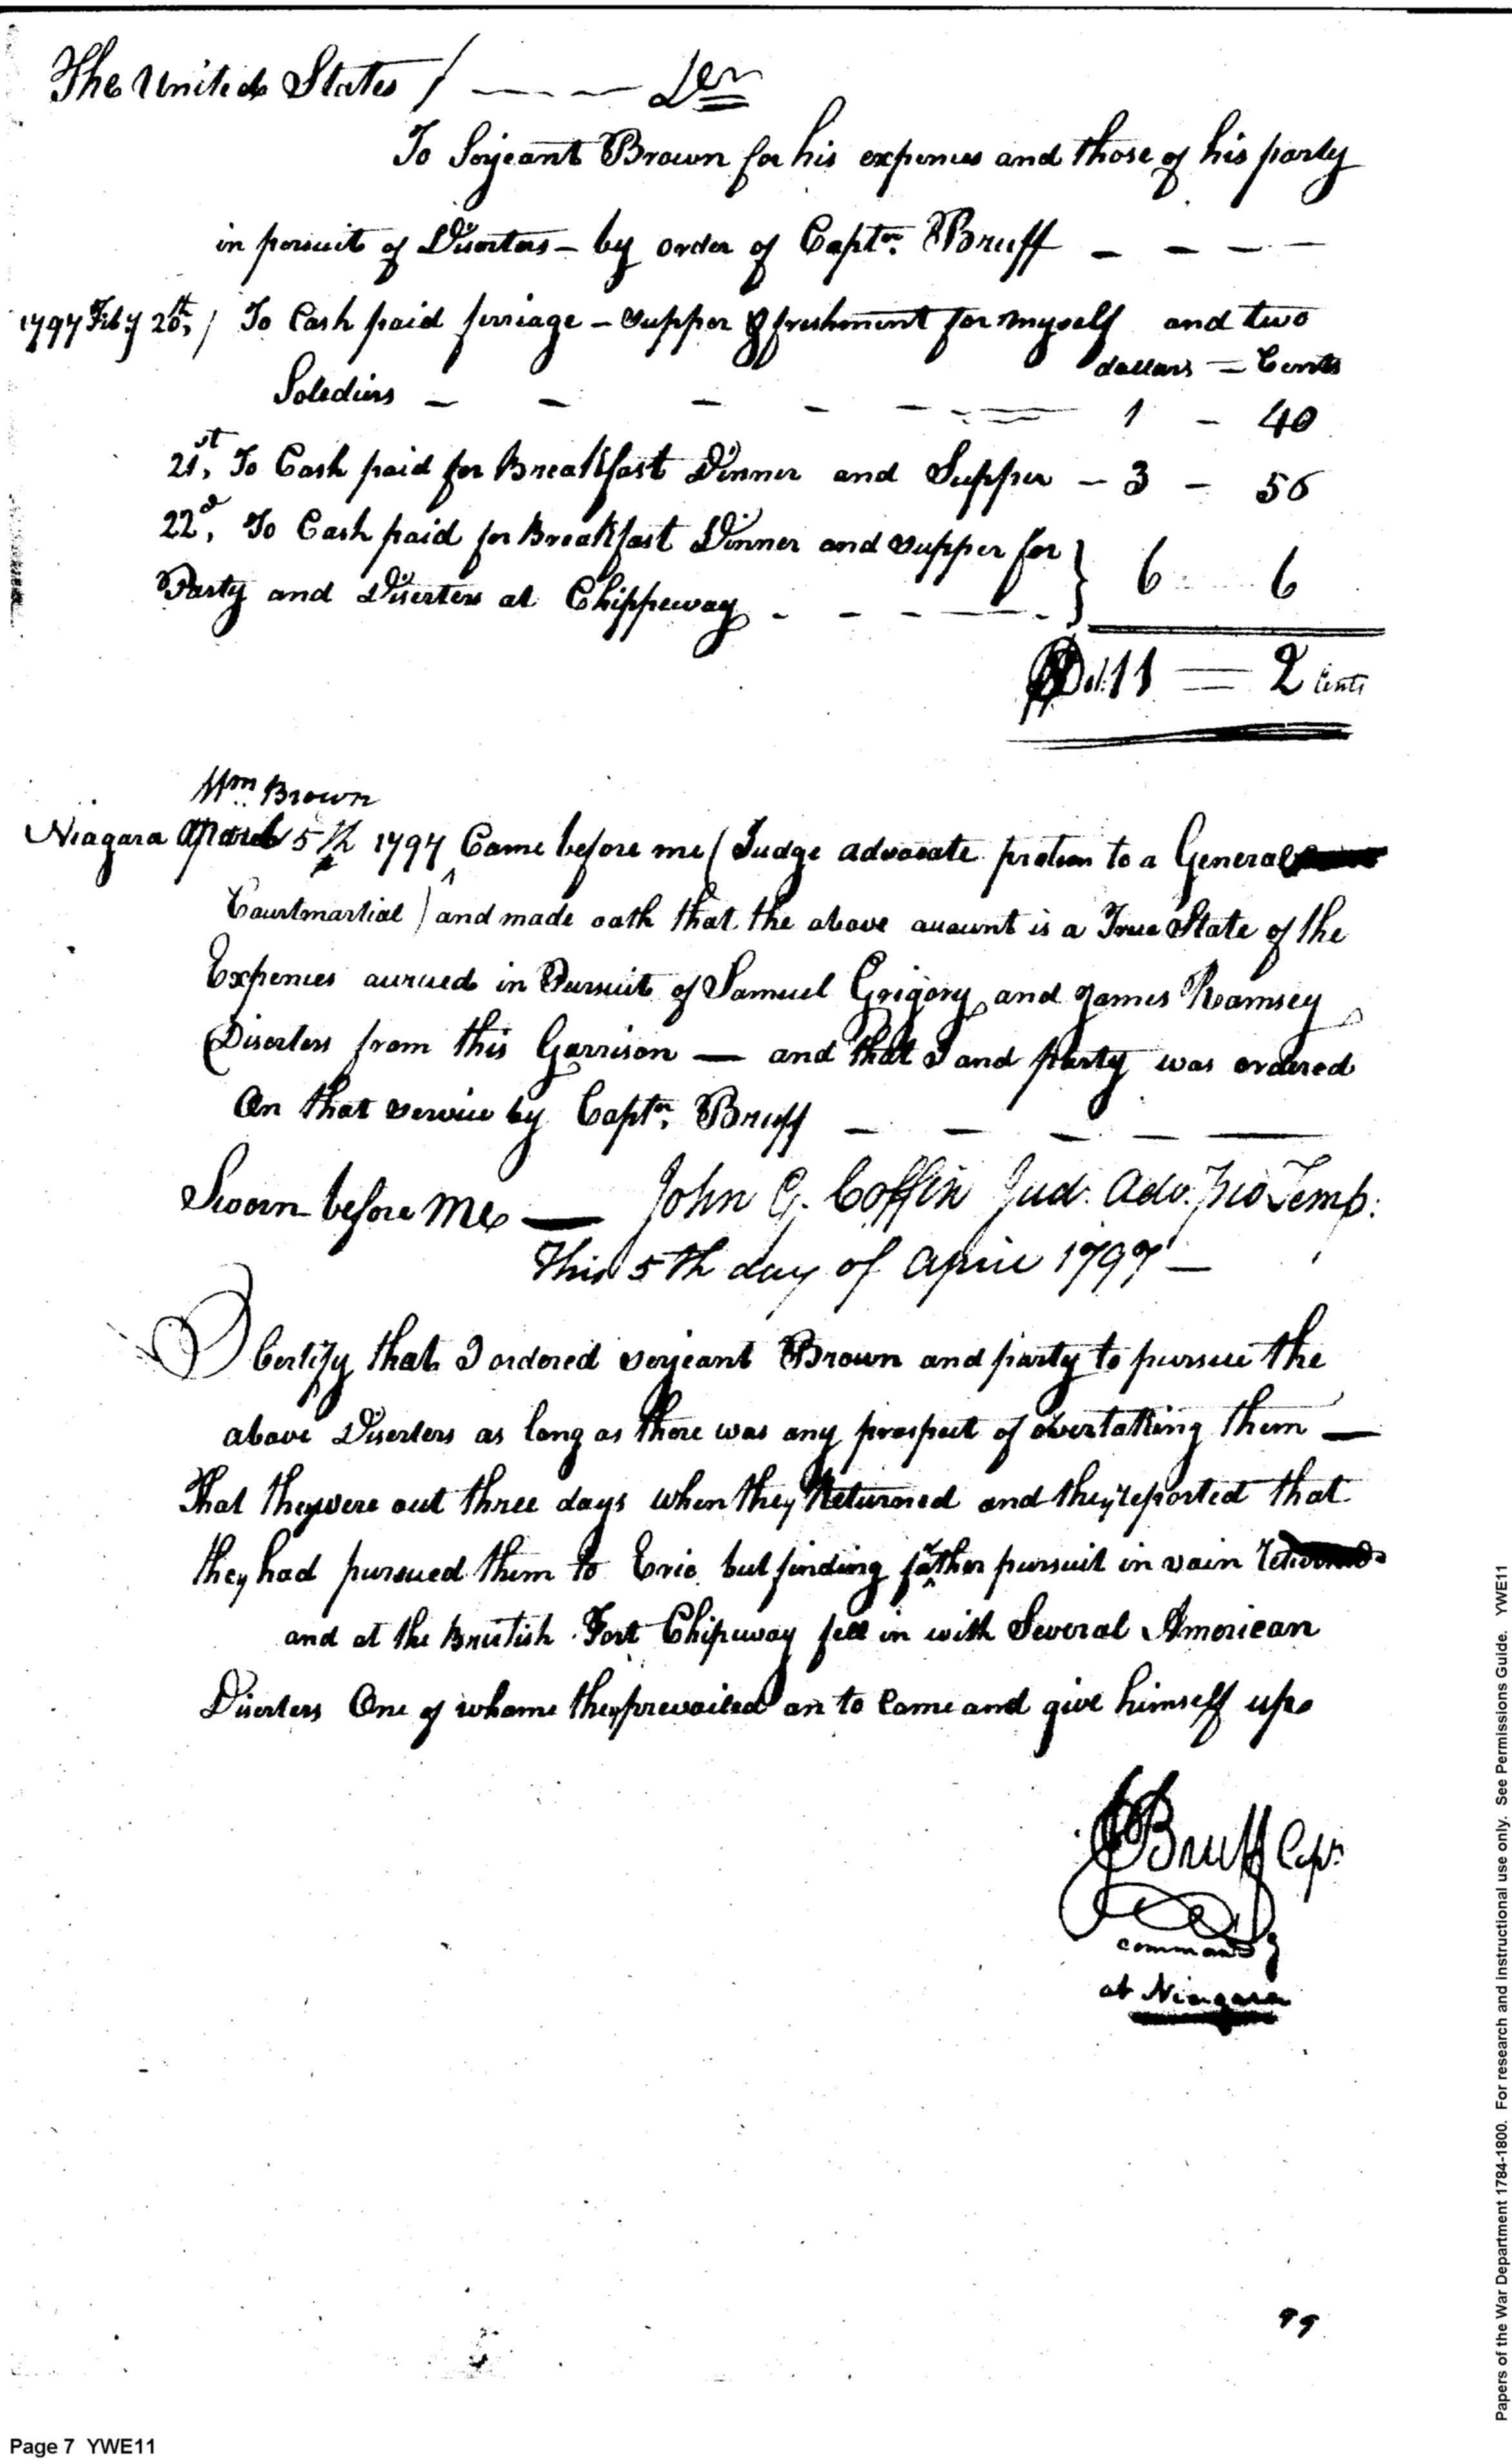 The United States / — — — Dr
To Serjeant Brown for his expences and those of his party
in persuit of Diserters – by order of Captn. Bruff — — — —
1797 Feby 20th, / To Cash paid ferriage – supper & freshment for myself and two
dollars = Cents
Solediers — — — — — — 1 – 40
21st, To Cash paid for Breakfast Dinner and Supper – 3 – 56
22d, To Cash paid for Breakfast Dinner and supper for
Party and Diserters at Chippeway - - - — - } 6 6
Dol. 11 = 2 Cents
Wm Brown
Niagara 5th 1797 ^ Came before me ( Judge advocate protem to a General
Courtmartial ) and made oath that the above account is a True State of the
Expences accrued in Pursuit of Samuel Grigory and James Ramsey
Diserters from this Garrison — and that I and party was ordered
On that service by Captn. Bruff — — — — —
Sworn before me — John G. Coffin Jud. Adv. Pro Temp:
This 5th day of April 1797 —
I Certify that I ordered serjeant Brown and party to pursue the
above Diserters as long as there was any prospect of overtaking them —
That they were out three days when they Returned and they reported that
they had pursued them to Erie but finding farther pursuit in vain Returned
and at the British Fort Chipeway fell in with Several American
Diserters One of whome they prevailed on to Come and give himself up
J Bruff Capt.
commandg
at Niagara
99
Page 7 YWE11
Papers of the War Department 1784-1800. For research and instructional use only. See Permissions Guide. YWE11